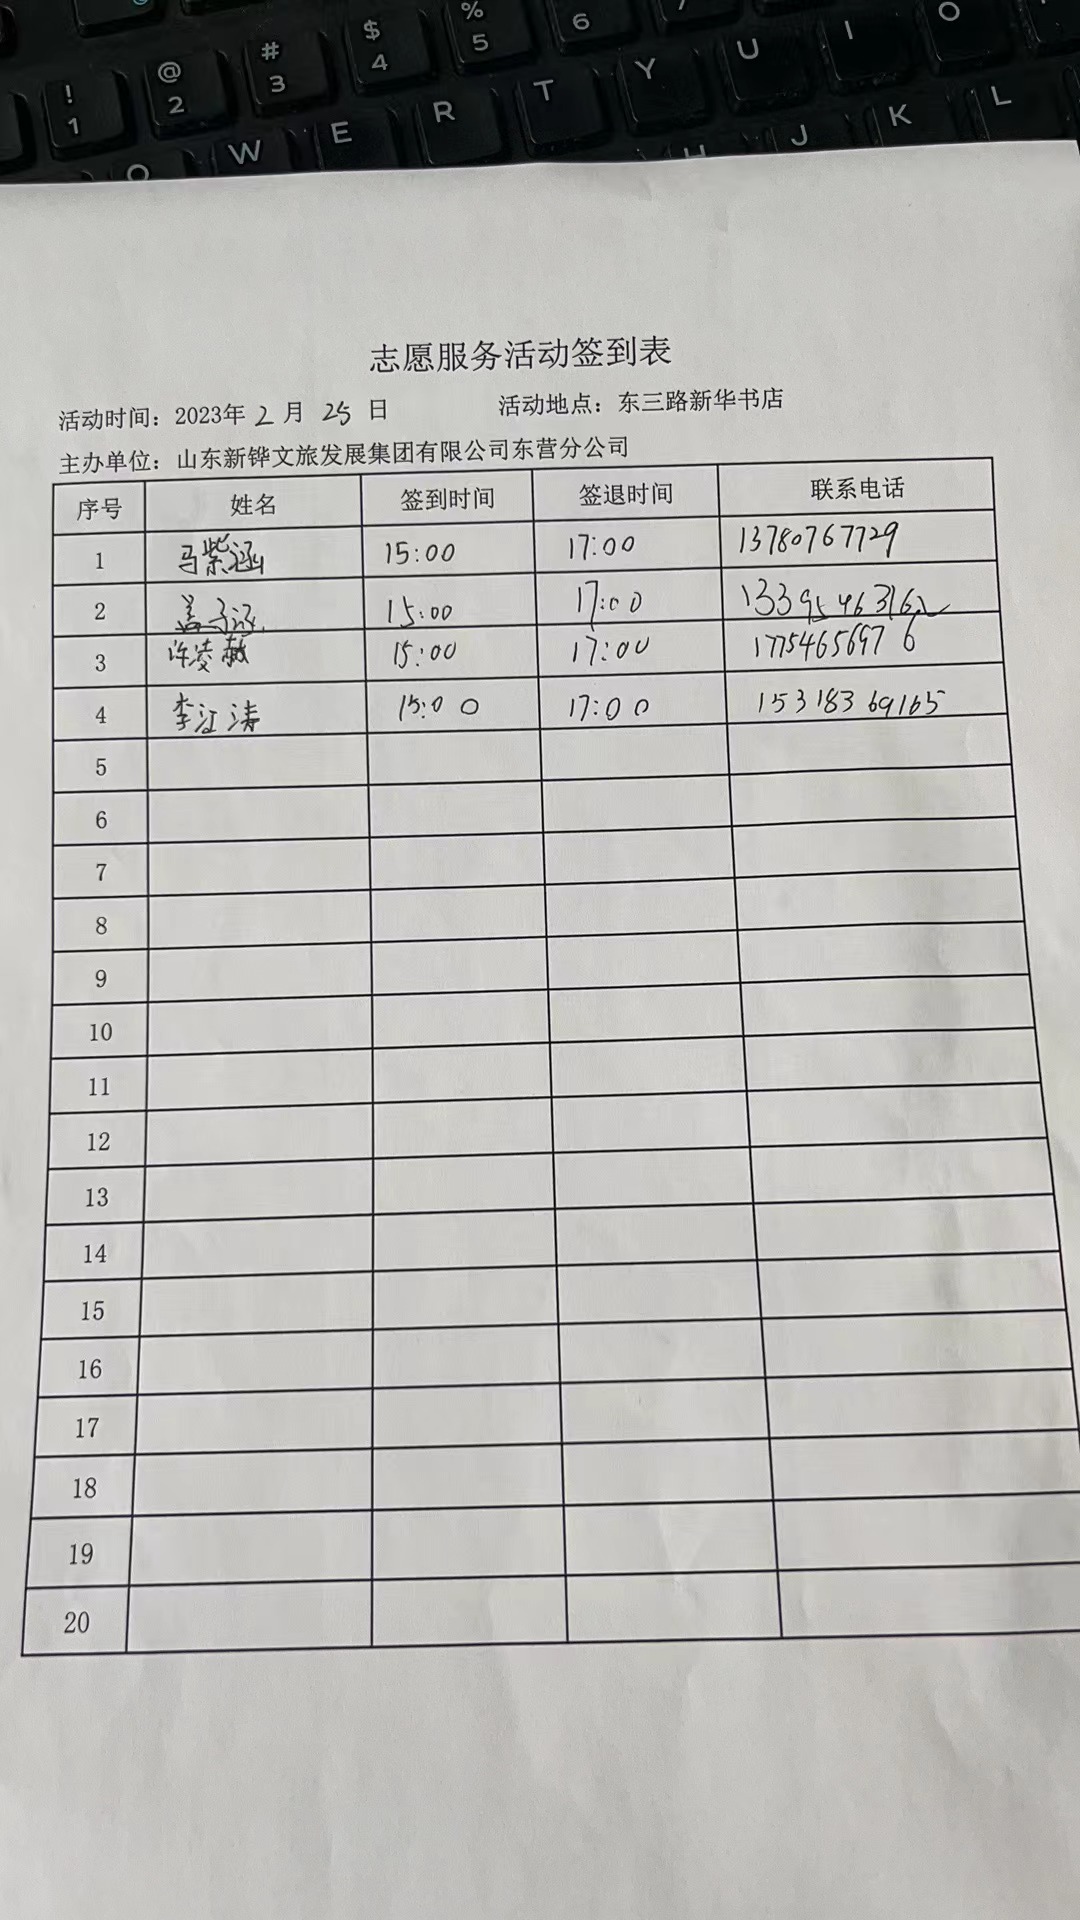 ! @ # $ %
1 2 3 4 5 6 7
Q W E R T Y U I O
H J K L
志愿服务活动签到表
活动时间：2023年 2 月 25 日 活动地点：东三路新华书店
主办单位：山东新铧文旅发展集团有限公司东营分公司
序号 姓名 签到时间 签退时间 联系电话
1 马紫涵 15:00 17:00 13780767729
2 盖子涵 15:00 17:00 13395463162
3 许凌赫 15:00 17:00 17754656976
4 李江涛 15:00 17:00 15318369165
5
6
7
8
9
10
11
12
13
14
15
16
17
18
19
20